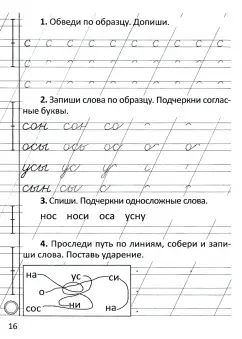 1. Обведи по образцу. Допиши.
с с с с с с с с с с с
2. Запиши слова по образцу. Подчеркни соглас-
ные буквы.
сон сон со
осы ос о
усы ус у
сыны сы с
3. Спиши. Подчеркни односложные слова.
нос носи оса усну
4. Проследи путь по линиям, собери и запи-
ши слова. Поставь ударение.
на ус си
о
сос ни на
16